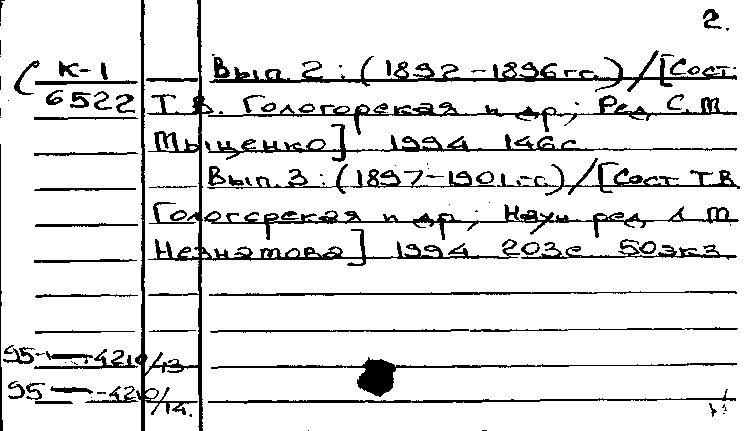 2.
К-1 Вып. 2 : (1892-1896гг.) / [Сост.
6522 Т.В. Гологорская и др.; Ред. С.М.
Мыщенко] 1994 146с
Вып. 3 : (1897-1901.гг.) / [Сост. Т.В
Гологорская и др; Научн ред Л М
Незнамова] 1994 203с 50экз
95-4210/13
95-4210/14.